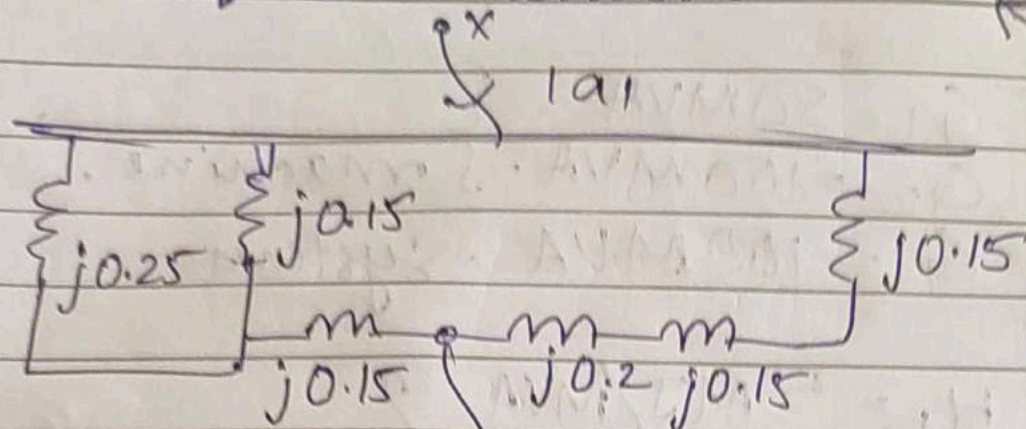 x
1a1
j0.15
j0.25
j0.15
j0.15 j0.2 j0.15